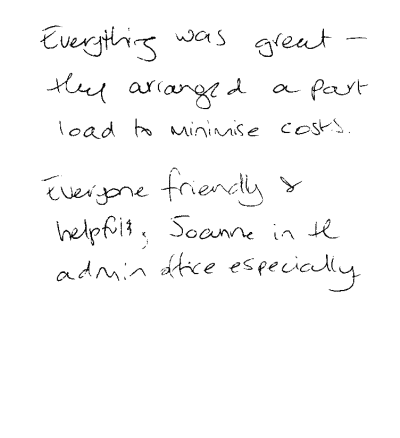 Everything was great -
they arranged a part
load to minimise costs.
Everyone friendly &
helpful; Joanne in the
admin office especially